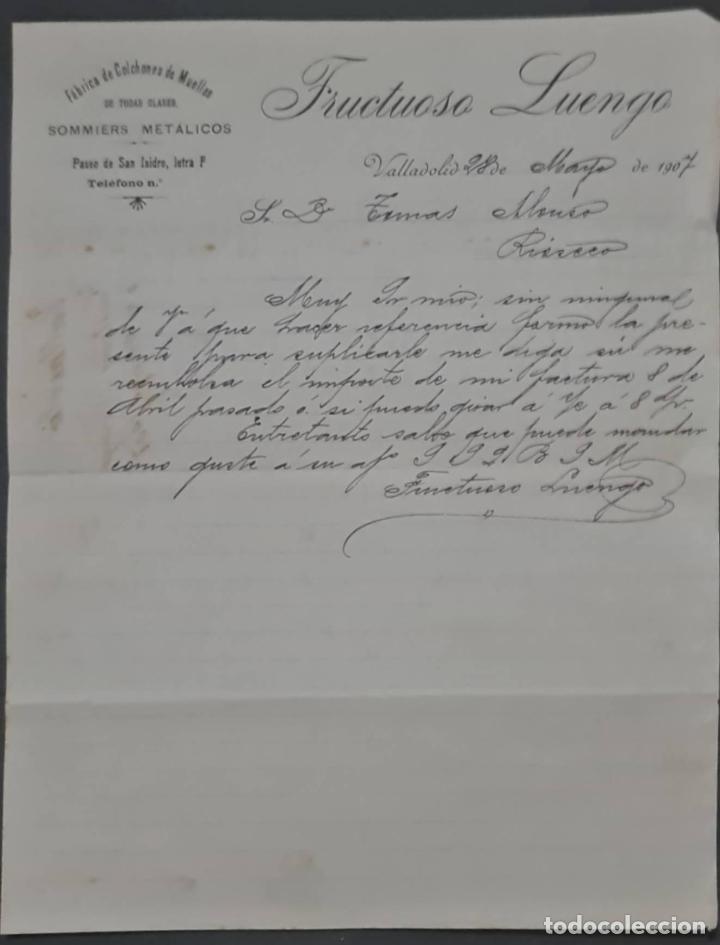 Fábrica de Colchones de Muelles
DE TODAS CLASES.
SOMMIERS METÁLICOS
Paseo de San Isidro, letra F
Teléfono n.º
Fructuoso Luengo
Valladolid 28 de Mayo de 1907
S. D. Tomas Alonso
Rioseco
Muy Sr mio; sin ninguna
de V á que hacer referencia formo la pre-
sente para suplicarle me diga si me
reembolsa el importe de mi factura 8 de
Abril pasado ó si puedo girar á Ve á 8 d/v.
Entretanto sabe que puede mandar
como guste á su afº S S Q B S M
Fructuoso Luengo
todocoleccion